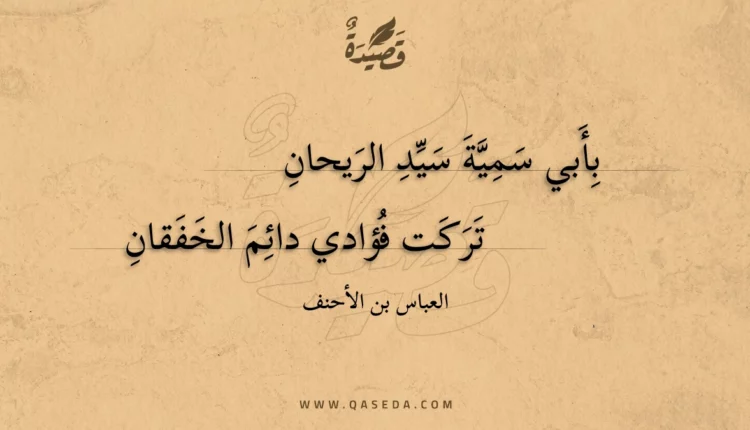 قَصِيدَةٌ
بِأَبي سَمِيَّةَ سَيِّدِ الرَيحانِ
تَرَكَت فُؤادي دائِمَ الخَفَقانِ
العباس بن الأحنف
WWW.QASEDA.COM